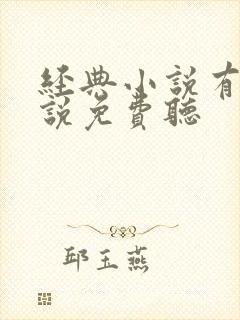 經典小說有
說免費聽
邱玉燕